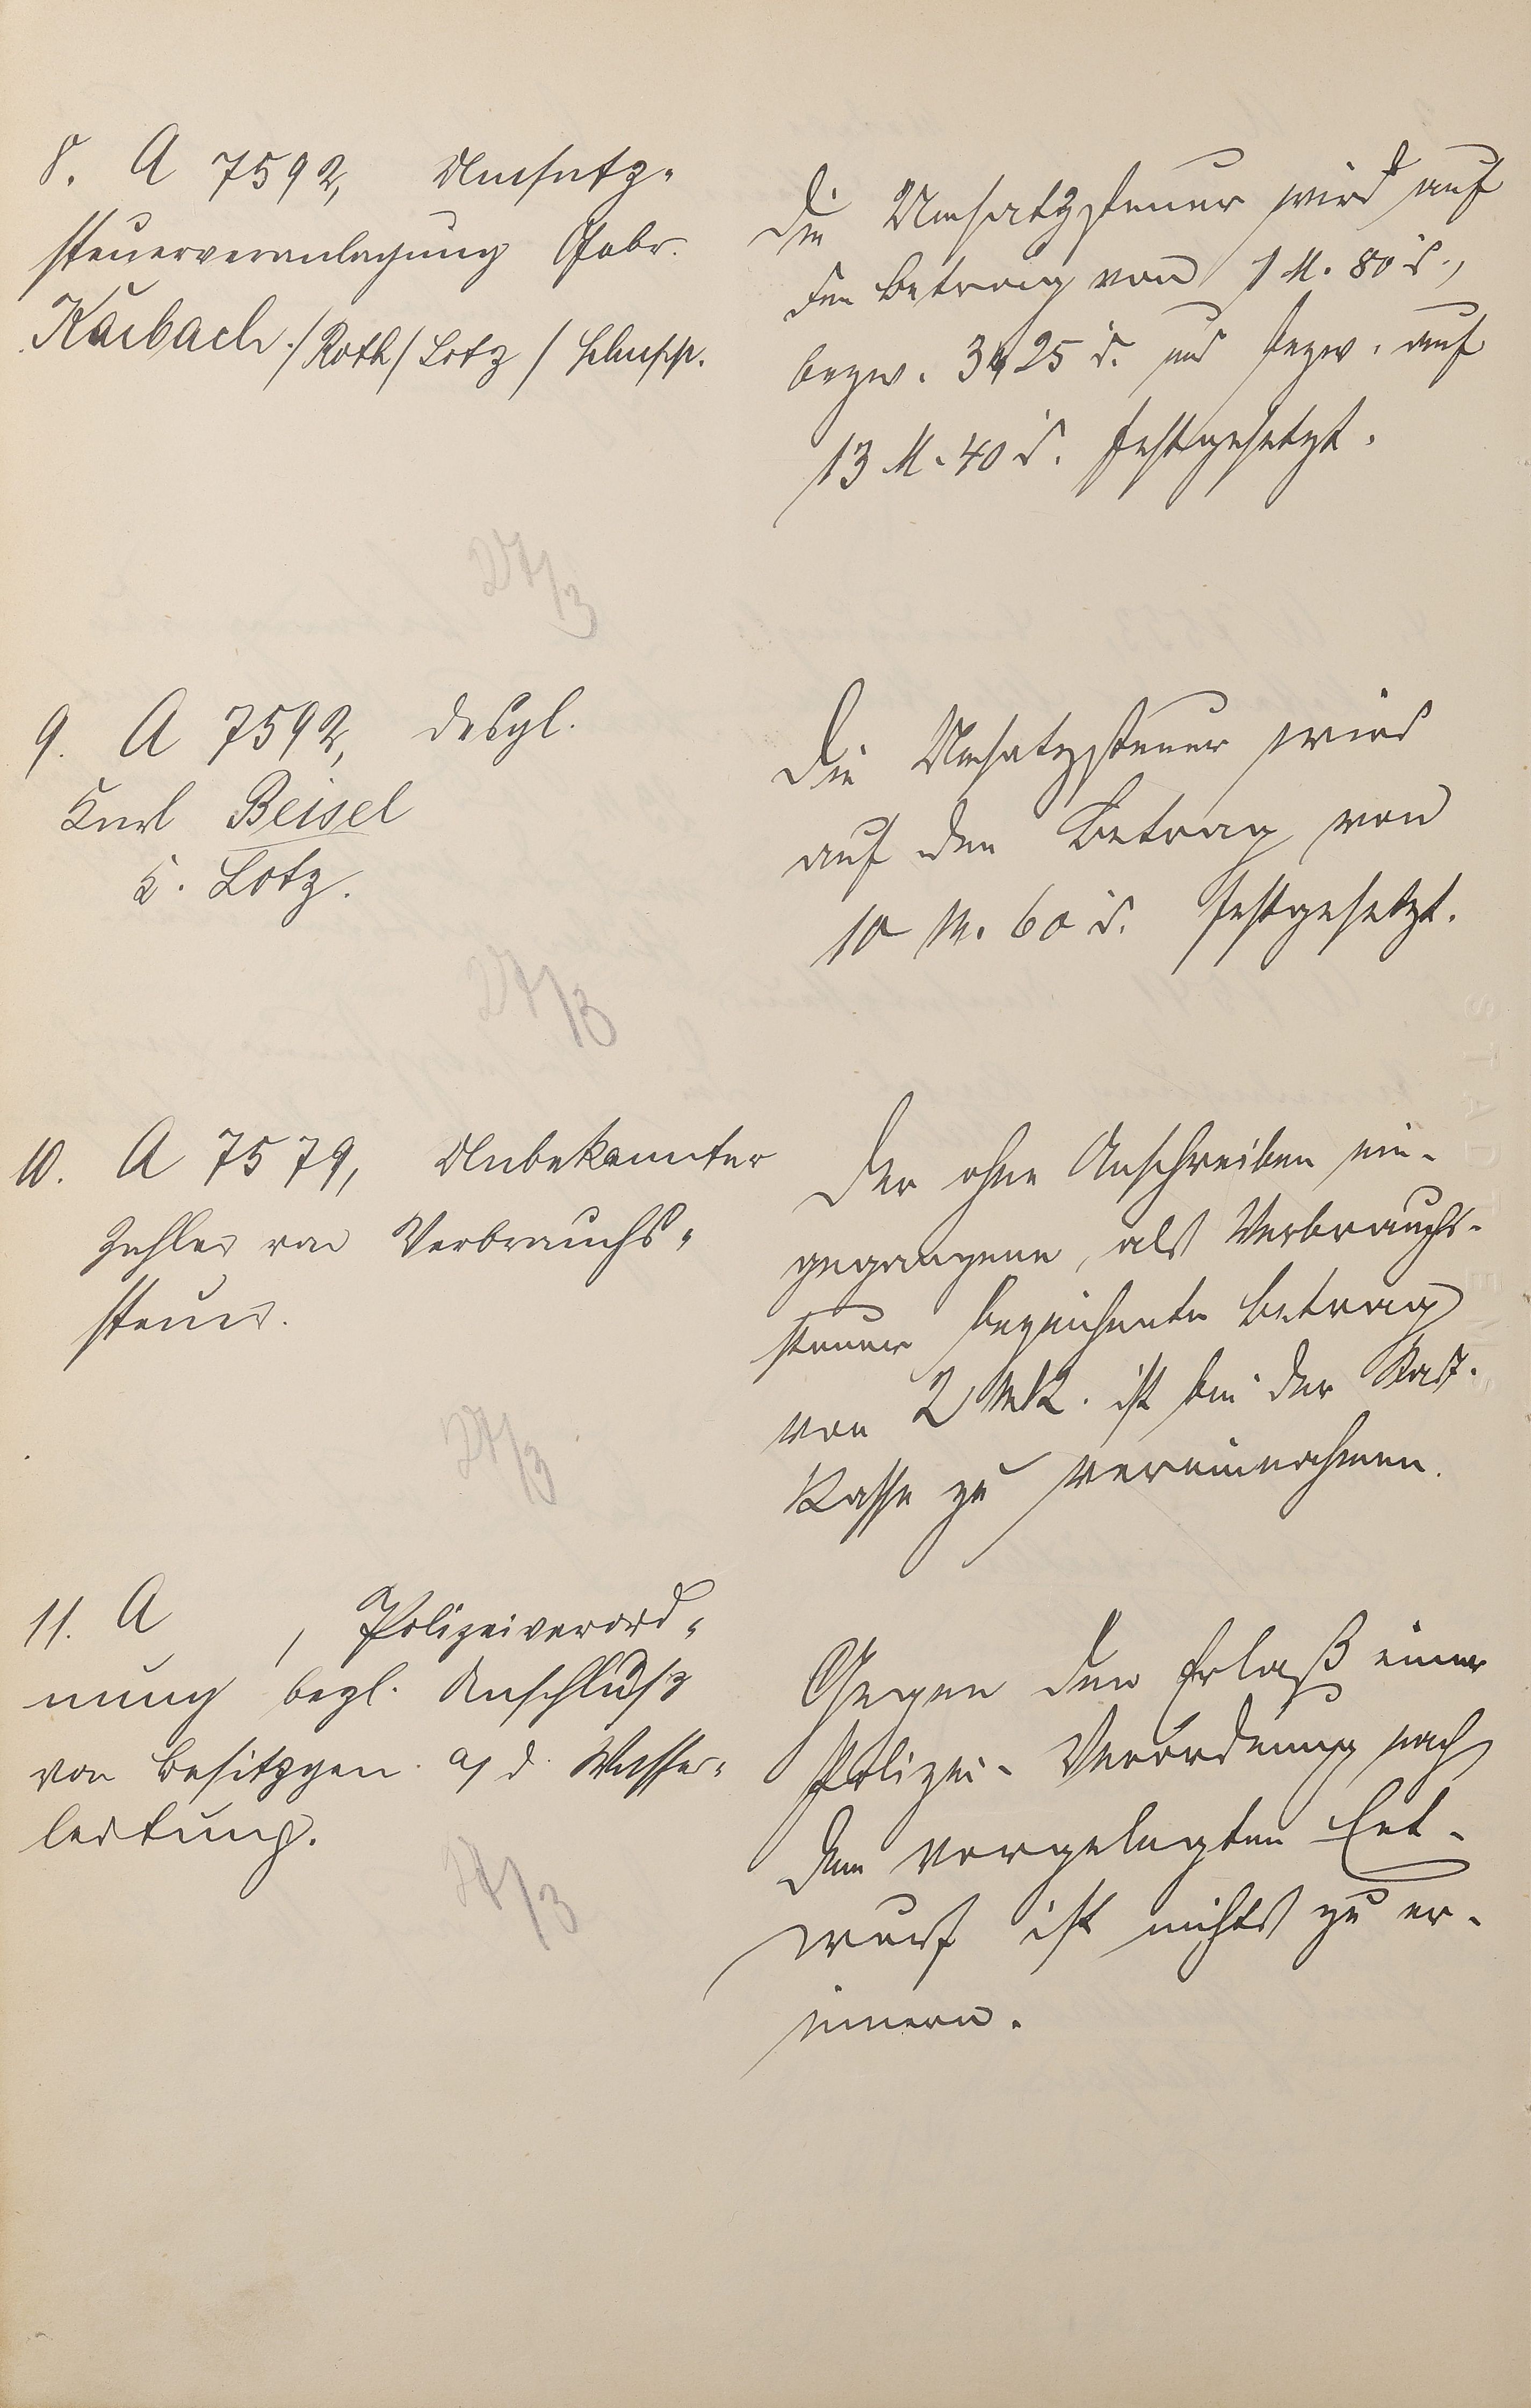 8. A 7592, Umsatz-
steuerveranlagung Gebr.
Karbach./Roth/Lotz/Schupp.
Die Umsatzsteuer wird auf
den Betrag von 1 M. 80 d.,
bezw. 3 M 25 d. und bezw. auf
13 M. 40 d. festgesetzt.
27/3
9. A 7592, desgl.
Karl Beisel
K. Lotz.
Die Umsatzsteuer wird
auf den Betrag von
10 M. 60 d. festgesetzt.
27/3
10. A 7579, Unbekannter
Zahler von Verbrauchs-
steuer.
Der ohne Anschreiben ein-
gegangene, als Verbrauchs-
steuer bezeichnete Betrag
von 2 Mk. ist bei der Stadt-
Kasse zu vereinnahmen.
27/3
11. A , Polizeiverord-
nung bezl. Anschluß
von Besitzgen. a/ d. Wasser-
leitung.
Gegen den Erlaß einer
Polizei-Verordnung nach
dem vorgelegten Ent-
wurf ist nichts zu er-
innern.
27/3